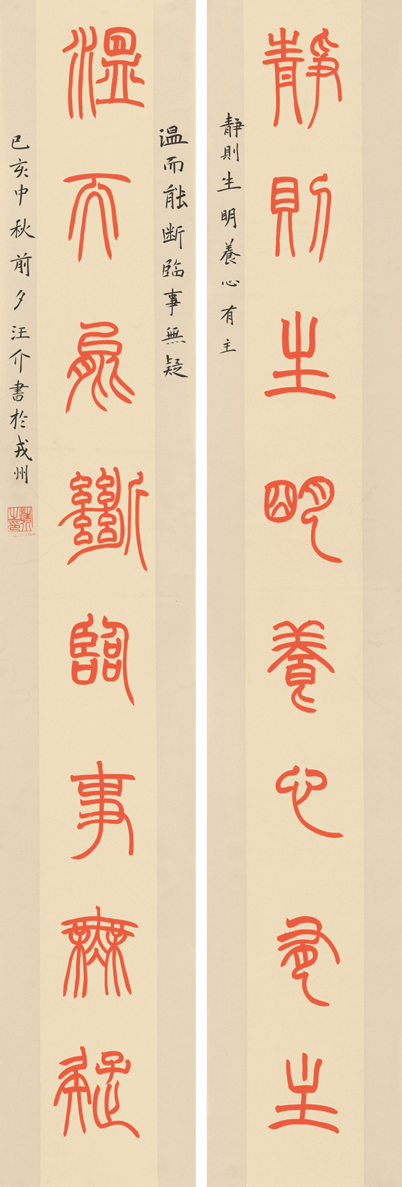 靜則生明養心有主
靜則生明養心有主
溫而能斷臨事無疑
温而能断臨事無疑
己亥中秋前夕汪介書於戎州